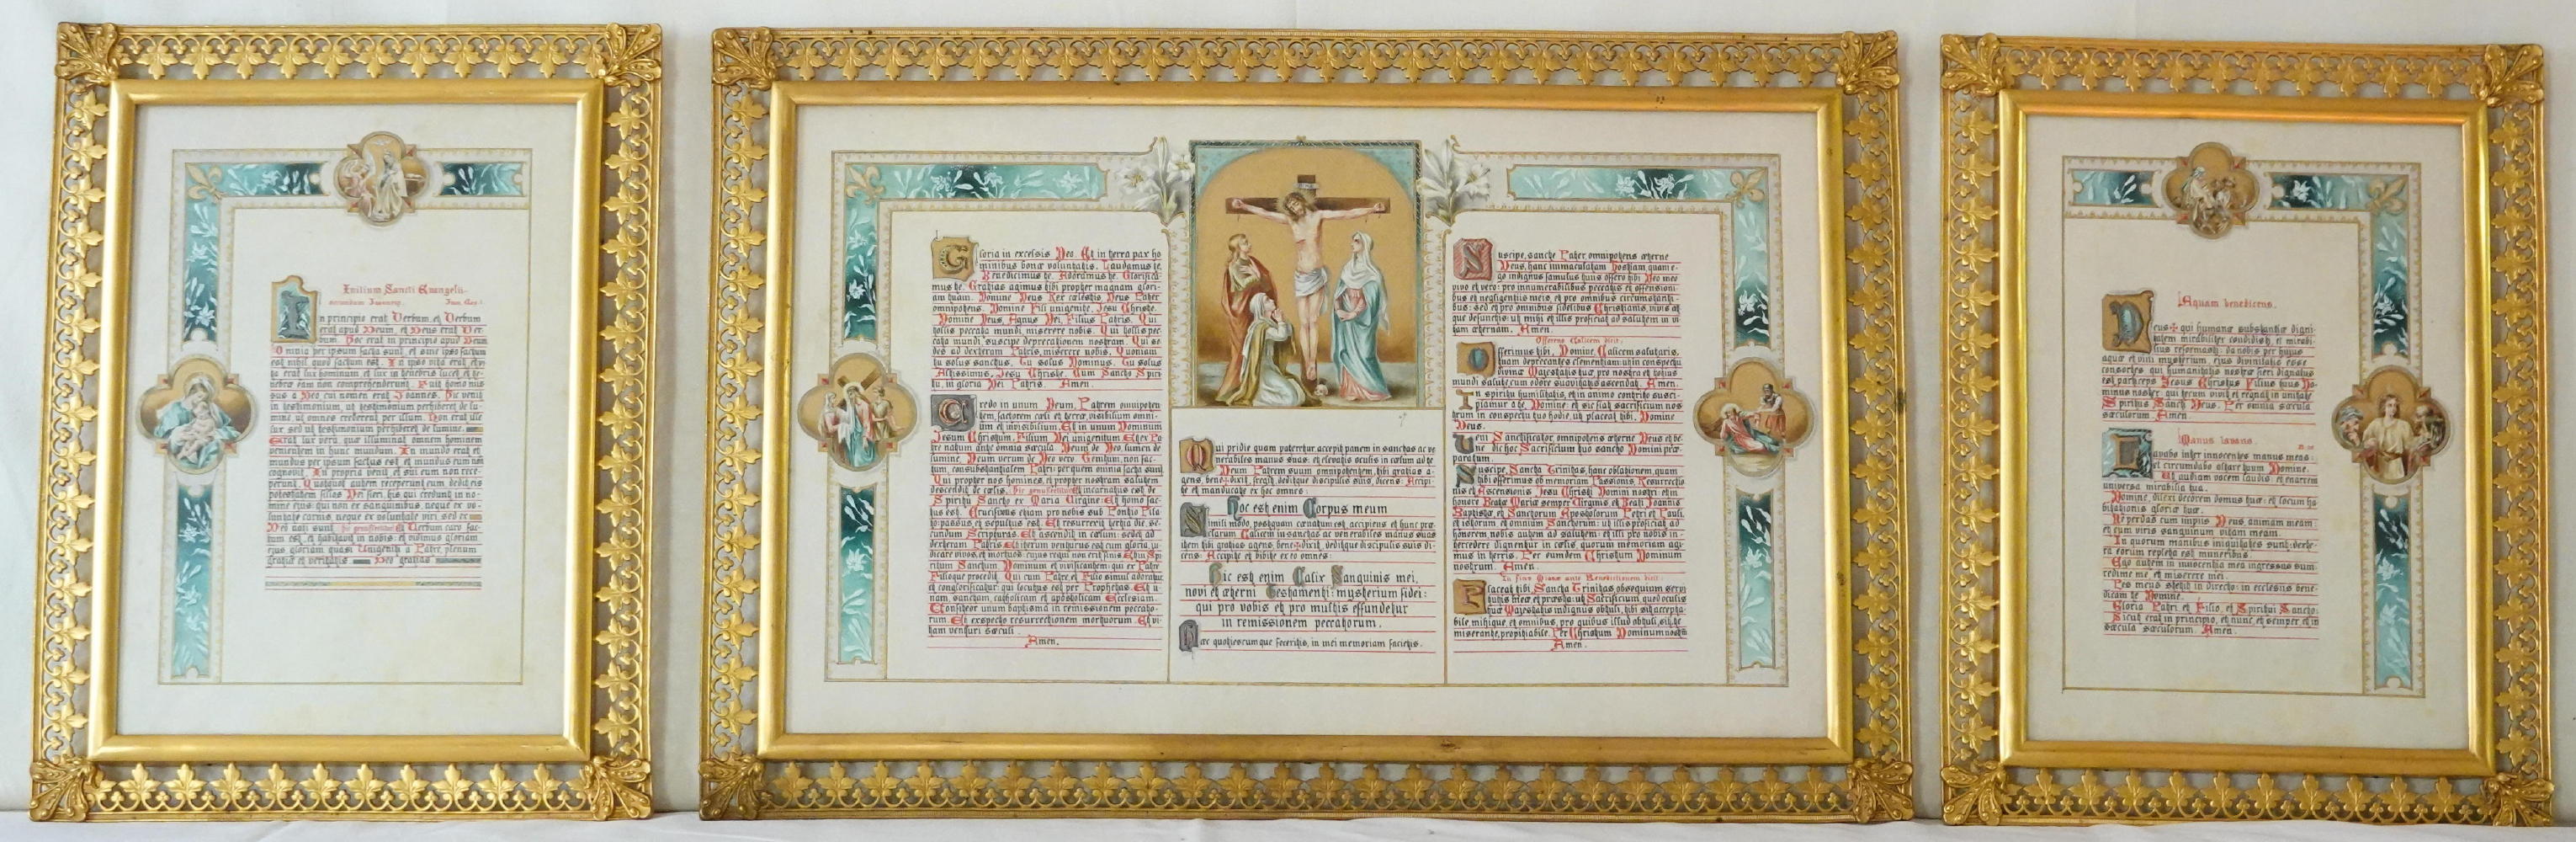 Initium Sancti Evangelii
secundum Joannem. Joan. Cap. 1.
In principio erat Verbum, et Verbum
erat apud Deum, et Deus erat Ver-
bum. Hoc erat in principio apud Deum
Omnia per ipsum facta sunt, et sine ipso factum
est nihil, quod factum est. In ipso vita erat, et vi-
ta erat lux hominum, et lux in tenebris lucet, et te-
nebræ eam non comprehenderunt. Fuit homo mis-
sus a Deo, cui nomen erat Joannes. Hic venit
in testimonium, ut testimonium perhiberet de lu-
mine, ut omnes crederent per illum. Non erat ille
lux sed ut testimonium perhiberet de lumine.
Erat lux vera, quæ illuminat omnem hominem
venientem in hunc mundum. In mundo erat et
mundus per ipsum factus est, et mundus eum non
cognovit. In propria venit et sui eum non rece-
perunt. Quotquot autem receperunt eum dedit eis
potestatem filios Dei fieri, his, qui credunt in no-
mine ejus: qui non ex sanguinibus, neque ex vo-
luntate carnis, neque ex voluntate viri, sed ex
Deo nati sunt. hic genuflectitur Et Verbum caro fac-
tum est, et habitavit in nobis, et vidimus gloriam
ejus gloriam quasi Unigeniti a Patre, plenum
gratiæ et veritatis Deo gratias
Gloria in excelsis Deo. Et in terra pax ho
minibus bonæ voluntatis. Laudamus te,
Benedicimus te. Adoramus te. Glorifica-
mus te. Gratias agimus tibi propter magnam glori-
am tuam. Domine Deus Rex cœlestis, Deus Pater
omnipotens. Domine Fili unigenite, Jesu Christe.
Domine Deus, Agnus Dei, Filius Patris. Qui
tollis peccata mundi, miserere nobis. Qui tollis pec-
cata mundi, suscipe deprecationem nostram. Qui se-
des ad dexteram Patris, miserere nobis. Quoniam
tu solus sanctus. Tu solus Dominus. Tu solus
Altissimus, Jesu Christe. Cum Sancto Spiri-
tu, in gloria Dei Patris. Amen.
Credo in unum Deum, Patrem omnipoten-
tem, factorem cœli et terræ, visibilium omni-
um et invisibilium. Et in unum Dominum
Jesum Christum, Filium Dei unigenitum Et ex Pa
tre natum ante omnia sæcula. Deum de Deo, lumen de
lumine, Deum verum de Deo vero. Genitum, non fac-
tum, consubstantialem Patri: per quem omnia facta sunt
Qui propter nos homines, et propter nostram salutem
descendit de cœlis. hic genuflectitur Et incarnatus est de
Spiritu Sancto ex Maria Virgine: Et homo fac-
tus est. Crucifixus etiam pro nobis sub Pontio Pila-
to passus, et sepultus est. Et resurrexit tertia die, se-
cundum Scripturas. Et ascendit in cœlum: sedet ad
dexteram Patris. Et iterum venturus est cum gloria, ju-
dicare vivos, et mortuos: cujus regni non erit finis. Et in Spi
ritum Sanctum, Dominum et vivificantem: qui ex Patre
Filioque procedit. Qui cum Patre, et Filio simul adoratur,
et conglorificatur: qui locutus est per Prophetas. Et u-
nam, sanctam, catholicam et apostolicam Ecclesiam.
Confiteor unum baptisma in remissionem peccato-
rum. Et exspecto resurrectionem mortuorum. Et vi-
tam venturi sæculi.
Amen.
Qui pridie quam pateretur, accepit panem in sanctas ac ve
nerabiles manus suas, et elevatis oculis in cœlum ad te
Deum Patrem suum omnipotentem, tibi gratias a-
gens, bene✠dixit, fregit, deditque discipulis suis, dicens: Accipi-
te et manducate ex hoc omnes:
Hoc est enim Corpus meum
Simili modo, postquam cœnatum est, accipiens et hunc præ-
clarum Calicem in sanctas ac venerabiles manus suas
item tibi gratias agens, bene✠dixit, deditque discipulis suis di-
cens: Accipite et bibite ex eo omnes:
Hic est enim Calix Sanguinis mei,
novi et æterni Testamenti: mysterium fidei:
qui pro vobis et pro multis effundetur
in remissionem peccatorum.
Hæc quotiescumque feceritis, in mei memoriam facietis.
Suscipe, sancte Pater, omnipotens æterne
Deus, hanc immaculatam Hostiam quam e-
go indignus famulus tuus offero tibi Deo meo
vivo et vero: pro innumerabilibus peccatis et offensioni-
bus et negligentiis meis, et pro omnibus circumstanti-
bus: sed et pro omnibus fidelibus Christianis, vivis at-
que defunctis: ut mihi et illis proficiat ad salutem in vi-
tam æternam. Amen.
Offerens Calicem dicit:
Offerimus tibi, Domine, Calicem salutaris,
tuam deprecantes clementiam: ut in conspectu
divinæ Majestatis tuæ pro nostra et totius
mundi salute, cum odore suavitatis ascendat. Amen.
In spiritu humilitatis, et in animo contrito susci-
piamur a te, Domine: et sic fiat sacrificium nos
trum in conspectu tuo hodie, ut placeat tibi, Domine
Deus.
Veni Sanctificator, omnipotens æterne Deus et be-
ne dic hoc Sacrificium tuo sancto Nomini præ-
paratum.
Suscipe, Sancta Trinitas, hanc oblationem, quam
tibi offerimus ob memoriam Passionis, Resurrectio
nis et Ascensionis Jesu Christi Domini nostri: et in
honore Beatæ Mariæ semper Virginis, et Beati Joannis
Baptistæ, et Sanctorum Apostolorum Petri et Pauli,
et istorum et omnium Sanctorum: ut illis proficiat ad
honorem, nobis autem ad salutem: et illi pro nobis in-
tercedere dignentur in cœlis, quorum memoriam agi-
mus in terris. Per eumdem Christum Dominum
nostrum. Amen.
In fine Missæ ante Benedictionem dicit:
Placeat tibi, Sancta Trinitas, obsequium servi
tutis meæ, et præsta: ut Sacrificium quod oculis
tuæ Majestatis indignus obtuli, tibi sit accepta-
bile, mihique, et omnibus, pro quibus illud obtuli, sit, te
miserante, propitiabile. Per Christum Dominum nostrum
Amen.
Aquam benedicens.
Deus✠ qui humanæ substantiæ digni-
tatem mirabiliter condidisti, et mirabi-
lius reformasti: da nobis per hujus
aquæ et vini mysterium, ejus divinitatis esse
consortes, qui humanitatis nostræ fieri dignatus
est particeps Jesus Christus Filius tuus Do-
minus noster: qui tecum vivit et regnat in unitate
Spiritus Sancti Deus. Per omnia sæcula
sæculorum. Amen.
Manus lavans.
Lavabo inter innocentes manus meas:
et circumdabo altare tuum Domine.
Ut audiam vocem laudis, et enarrem
universa mirabilia tua.
Domine, dilexi decorem domus tuæ: et locum ha-
bitationis gloriæ tuæ.
Ne perdas cum impiis Deus, animam meam:
et cum viris sanguinum vitam meam.
In quorum manibus iniquitates sunt: dexte-
ra eorum repleta est muneribus.
Ego autem in innocentia mea ingressus sum:
redime me, et miserere mei.
Pes meus stetit in directo: in ecclesiis bene-
dicam te Domine.
Gloria Patri, et Filio, et Spiritui Sancto:
Sicut erat in principio, et nunc, et semper et in
sæcula sæculorum. Amen.